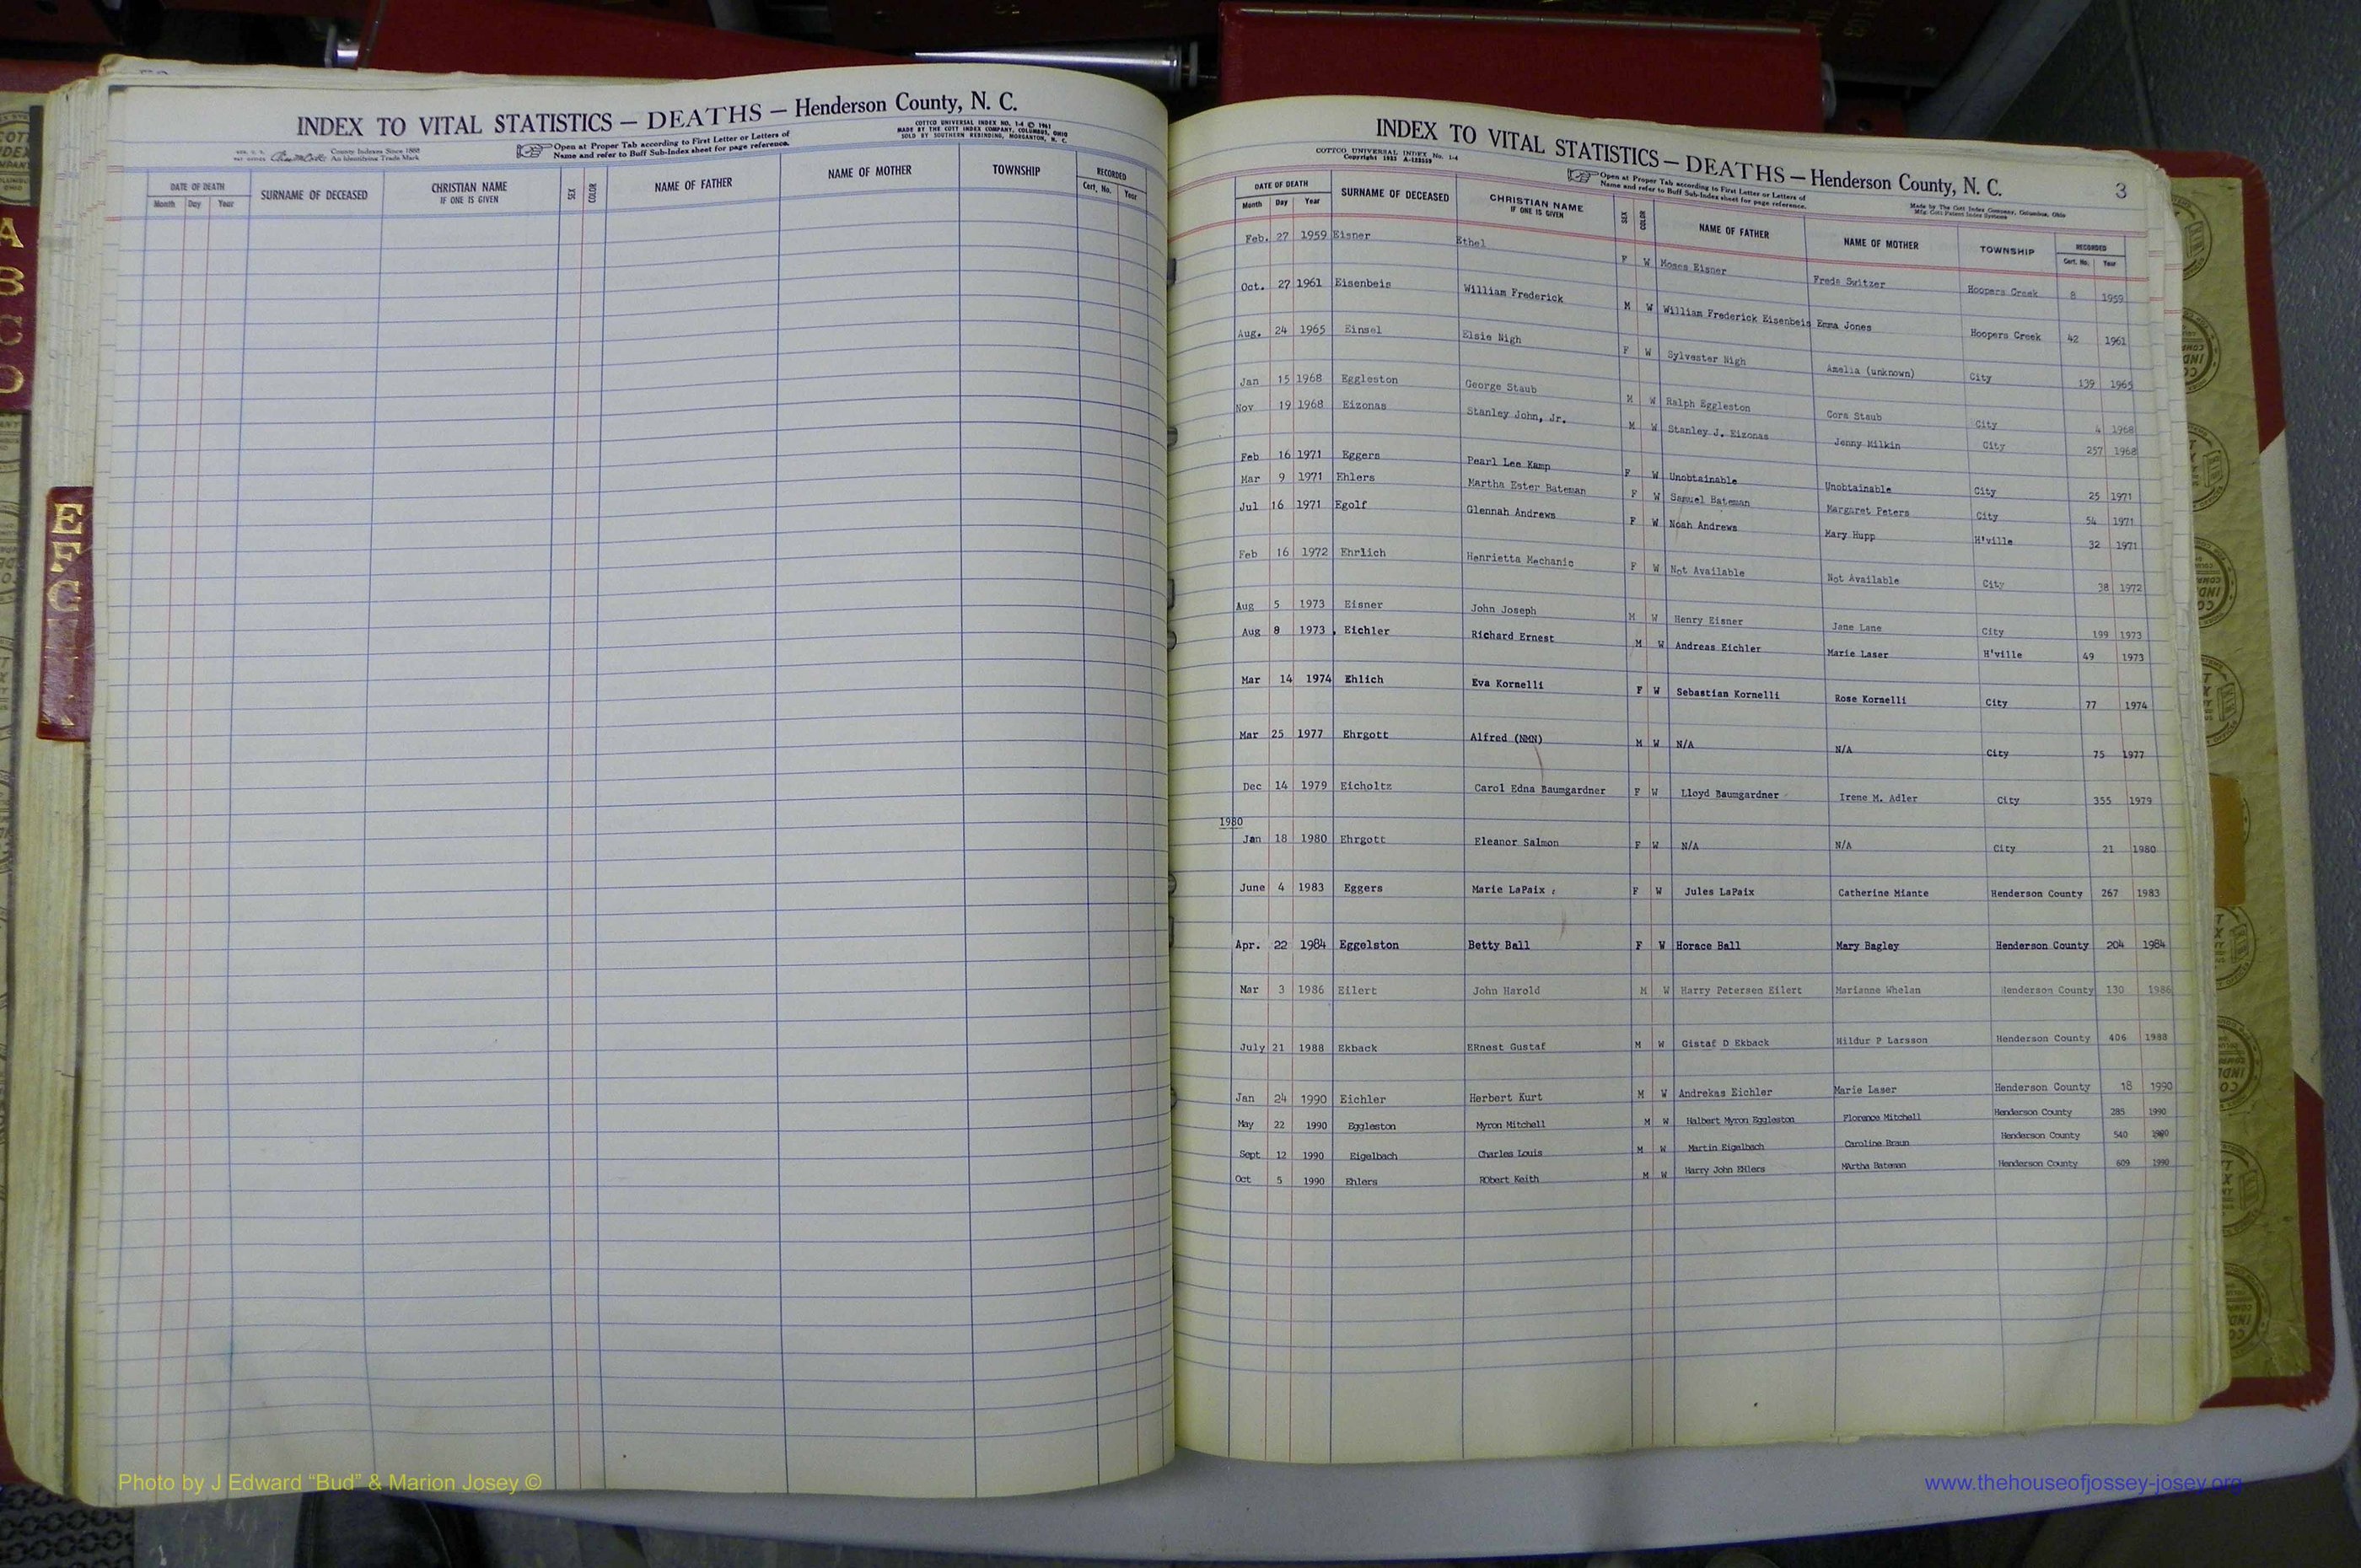 INDEX TO VITAL STATISTICS — DEATHS — Henderson County, N. C.
COTTCO UNIVERSAL INDEX NO. 1-4 © 1961
MADE BY THE COTT INDEX COMPANY, COLUMBUS, OHIO
SOLD BY SOUTHERN REBINDING, MORGANTON, N. C.
County Indexes Since 1888
An Identifying Trade Mark
Open at Proper Tab according to First Letter or Letters of
Name and refer to Buff Sub-Index sheet for page reference.
DATE OF DEATH SURNAME OF DECEASED CHRISTIAN NAME IF ONE IS GIVEN SEX COLOR NAME OF FATHER NAME OF MOTHER TOWNSHIP RECORDED
Month Day Year Cert. No. Year
A
B
C
D
E
F
G
INDEX TO VITAL STATISTICS — DEATHS — Henderson County, N. C. 3
COTTCO UNIVERSAL INDEX No. 1-4
Open at Proper Tab according to First Letter or Letters of
Name and refer to Buff Sub-Index sheet for page reference.
Made by The Cott Index Company, Columbus, Ohio
DATE OF DEATH SURNAME OF DECEASED CHRISTIAN NAME IF ONE IS GIVEN SEX COLOR NAME OF FATHER NAME OF MOTHER TOWNSHIP RECORDED
Month Day Year Cert. No. Year
Feb. 27 1959 Eisner Ethel F W Moses Eisner Freda Switzer Hoopers Creek 8 1959
Oct. 27 1961 Eisenbeis William Frederick M W William Frederick Eisenbeis Emma Jones Hoopers Creek 42 1961
Aug. 24 1965 Einsel Elsie Nigh F W Sylvester Nigh Amelia (unknown) City 139 1965
Jan 15 1968 Eggleston George Staub M W Ralph Eggleston Cora Staub City 4 1968
Nov 19 1968 Eizonas Stanley John, Jr. M W Stanley J. Eizonas Jenny Milkin City 257 1968
Feb 16 1971 Eggers Pearl Lee Kamp F W Unobtainable Unobtainable City 25 1971
Mar 9 1971 Ehlers Martha Ester Bateman F W Samuel Bateman Margaret Peters City 54 1971
Jul 16 1971 Egolf Glennah Andrews F W Noah Andrews Mary Hupp H'ville 32 1971
Feb 16 1972 Ehrlich Henrietta Mechanic F W Not Available Not Available City 38 1972
Aug 5 1973 Eisner John Joseph M W Henry Eisner Jane Lane City 199 1973
Aug 8 1973 Eichler Richard Ernest M W Andreas Eichler Marie Laser H'ville 49 1973
Mar 14 1974 Ehlich Eva Kornelli F W Sebastian Kornelli Rose Kornelli City 77 1974
Mar 25 1977 Ehrgott Alfred (NMN) M W N/A N/A City 75 1977
Dec 14 1979 Eicholtz Carol Edna Baumgardner F W Lloyd Baumgardner Irene M. Adler City 355 1979
1980
Jan 18 1980 Ehrgott Eleanor Salmon F W N/A N/A City 21 1980
June 4 1983 Eggers Marie LaPaix F W Jules LaPaix Catherine Miante Henderson County 267 1983
Apr. 22 1984 Eggelston Betty Ball F W Horace Ball Mary Bagley Henderson County 204 1984
Mar 3 1986 Eilert John Harold M W Harry Petersen Eilert Marianne Whelan Henderson County 130 1986
July 21 1988 Ekback ERnest Gustaf M W Gistaf D Ekback Hildur P Larsson Henderson County 406 1988
Jan 24 1990 Eichler Herbert Kurt M W Andrekas Eichler Marie Laser Henderson County 18 1990
May 22 1990 Eggleston Myron Mitchell M W Halbert Myron Eggleston Florence Mitchell Henderson County 285 1990
Sept 12 1990 Eigelbach Charles Louis M W Martin Eigelbach Caroline Braun Henderson County 540 1990
Oct 5 1990 Ehlers RObert Keith M W Harry John EHlers MArtha Bateman Henderson County 609 1990
Photo by J Edward “Bud” & Marion Josey ©
www.thehouseofjossey-josey.org